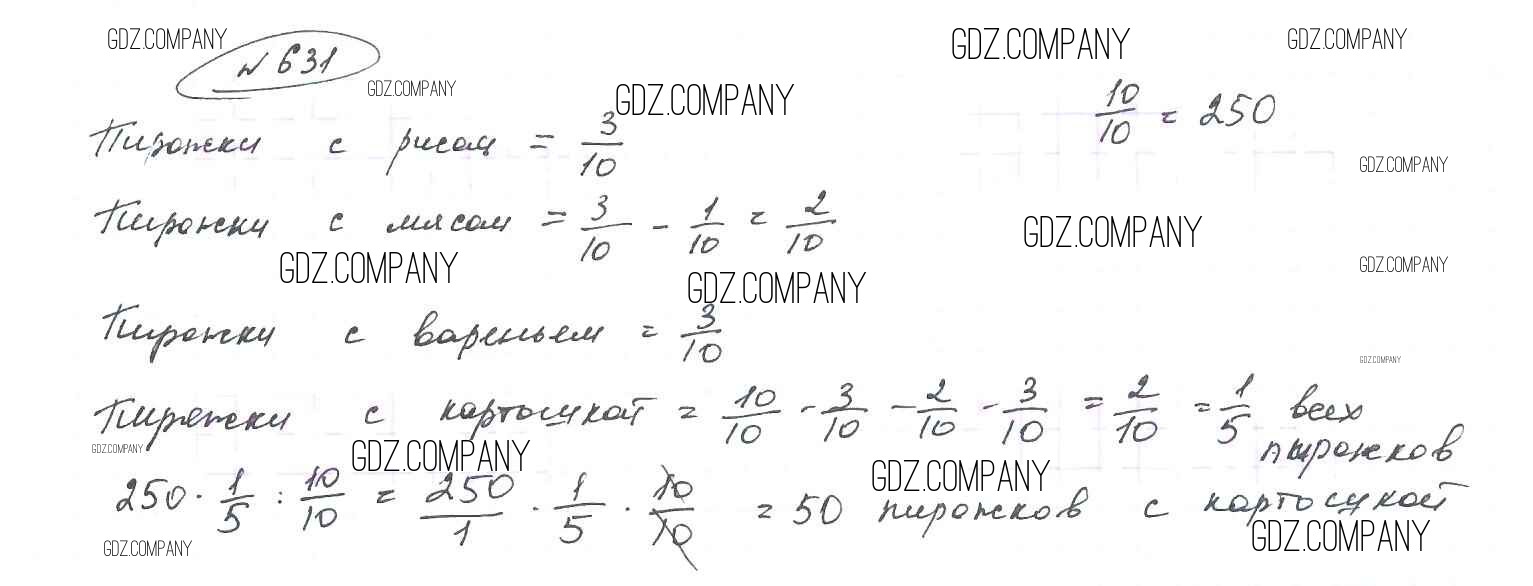 GDZ.COMPANY
GDZ.COMPANY
GDZ.COMPANY
№ 631
GDZ.COMPANY
GDZ.COMPANY
10/10 = 250
Пирожки с рисом = 3/10
GDZ.COMPANY
Пирожки с мясом = 3/10 - 1/10 = 2/10
GDZ.COMPANY
GDZ.COMPANY
GDZ.COMPANY
GDZ.COMPANY
Пирожки с вареньем = 3/10
GDZ.COMPANY
Пирожки с картошкой = 10/10 - 3/10 - 2/10 - 3/10 = 2/10 = 1/5 всех
пирожков
GDZ.COMPANY
GDZ.COMPANY
GDZ.COMPANY
250 · 1/5 : 10/10 = 250/1 · 1/5 · 10/10 = 50 пирожков с картошкой
GDZ.COMPANY
GDZ.COMPANY